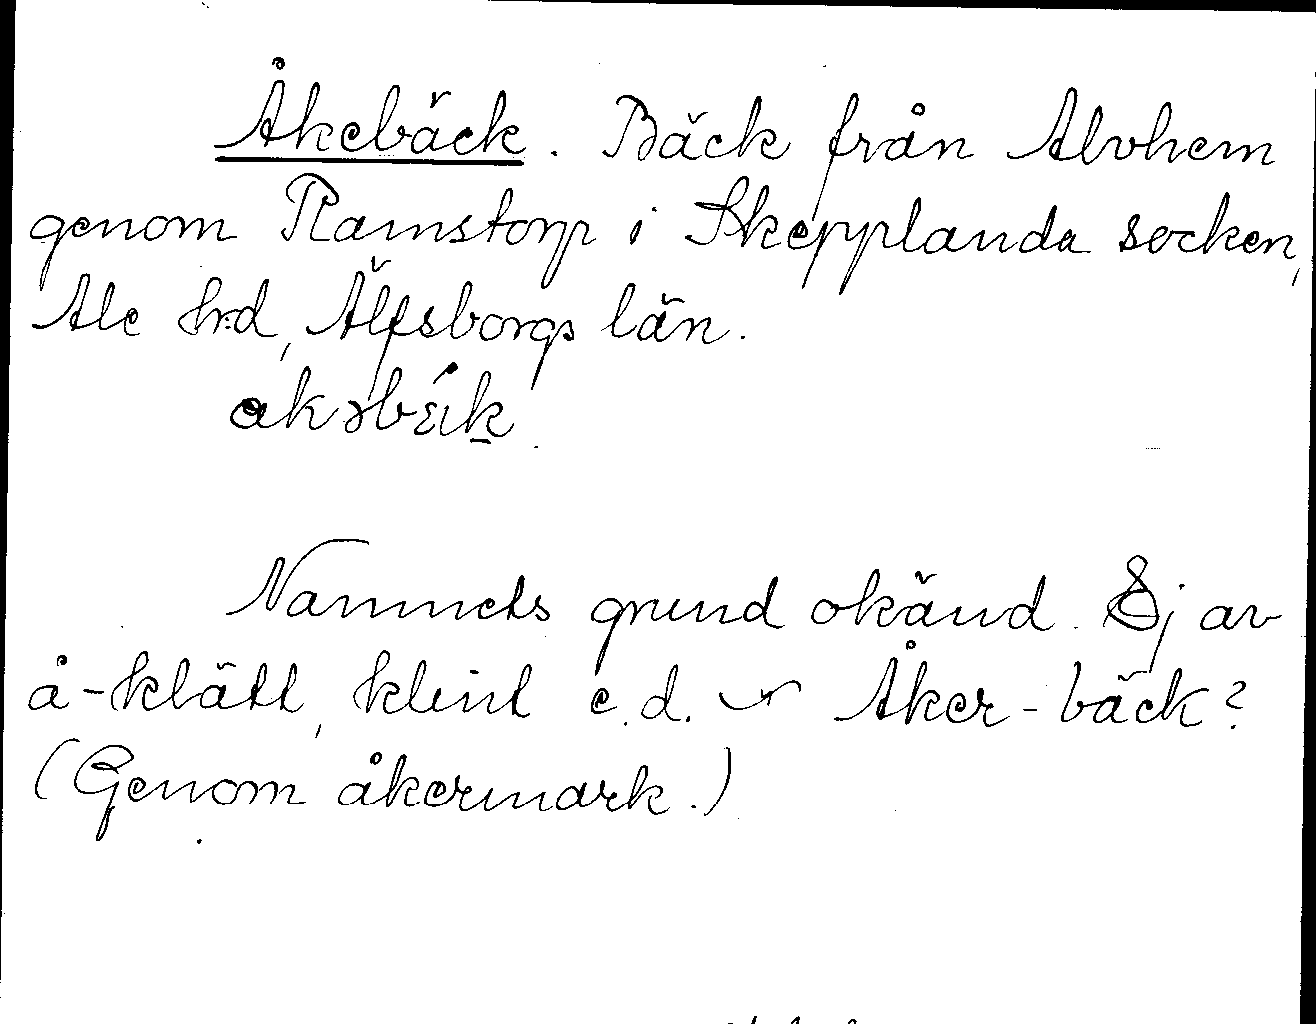 Åkebäck. Bäck från Alvhem
genom Ramstorp i Skepplanda socken,
Ale hrd, Älfsborgs län.
Namnets grund okänd. Ej av
å-klätt, klint e.d. Åker-bäck?
(Genom åkermark.)